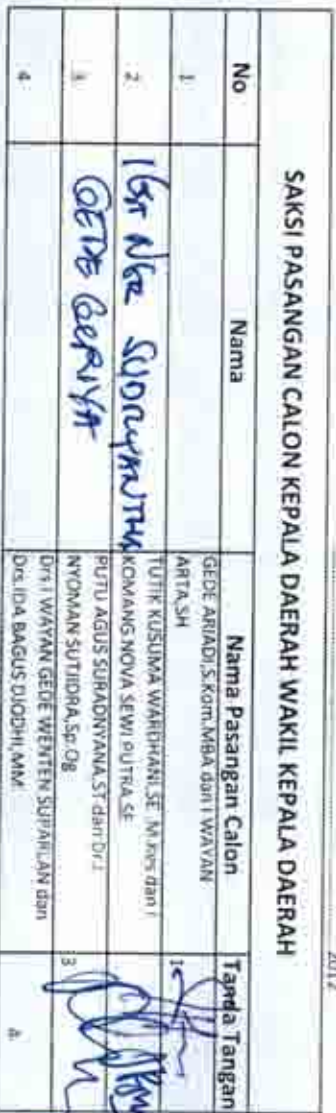 2012
SAKSI PASANGAN CALON KEPALA DAERAH WAKIL KEPALA DAERAH
No Nama Nama Pasangan Calon Tanda Tangan
1 GEDE ARIADI,S.Kom,MBA dan I WAYAN 1
ARTA,SH
2 IGST NGR SUDRIYANTHA TUTIK KUSUMA WARDHANI,SE.,M.Kes dan I
KOMANG NOVA SEWI PUTRA,SE
3 GEDE GERIYA PUTU AGUS SURADNYANA,ST dan Dr.I 3
NYOMAN SUTJIDRA,Sp.Og
4 Drs.I WAYAN GEDE WENTEN SUPARLAN dan 4
Drs.IDA BAGUS DJODHI,MM